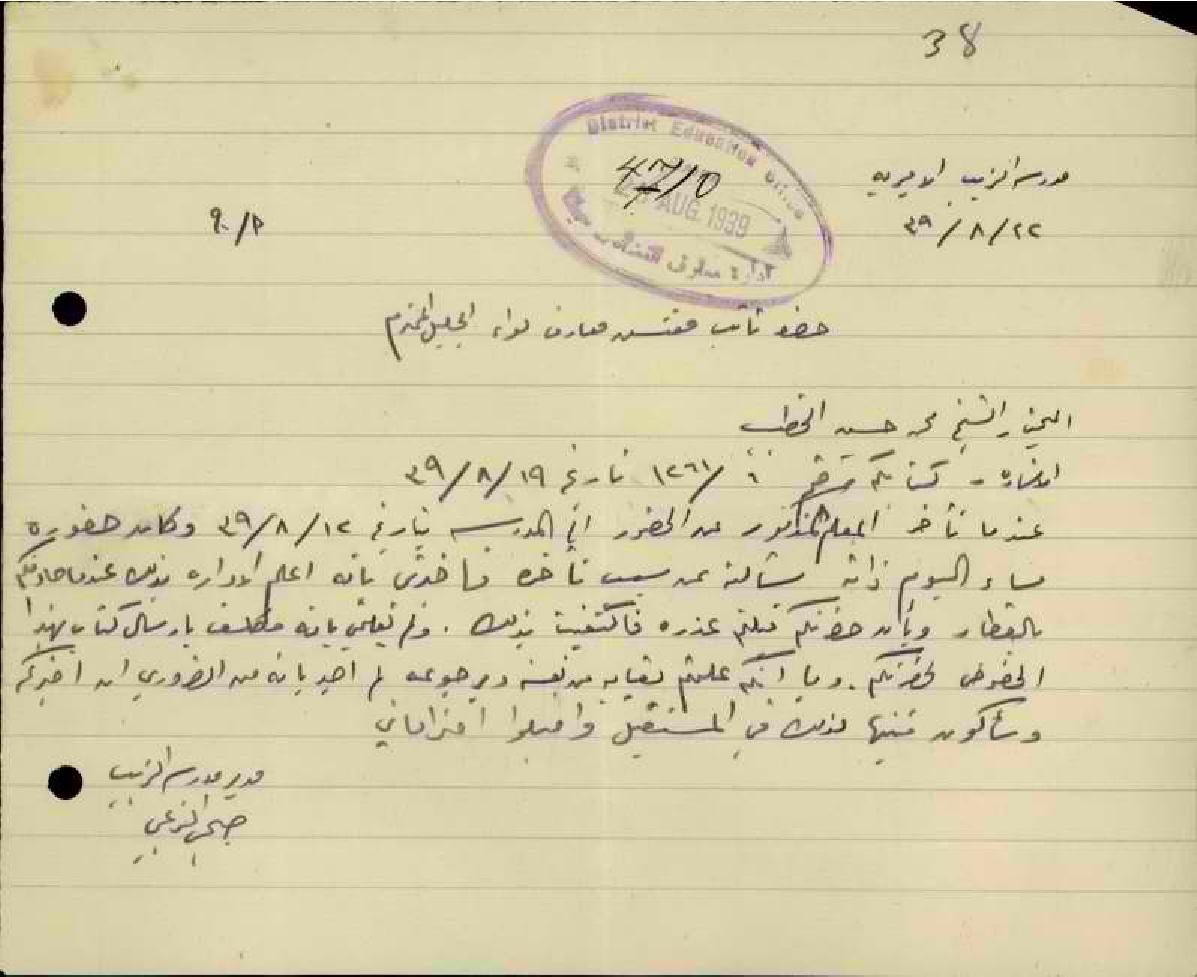 38
District Education Office
47/0
AUG. 1939
ادارة معارف
مدرسة الزيب الاميرية
٣٩/٨/٢٢
حضرة نائب مفتش معارف لواء الجليل المحترم
الشيخ محمد حسن الخطيب
كتابكم رقم ٦ /١٢٦١ تاريخ ٣٩/٨/١٩
عندما تأخر المعلم المذكور عن الحضور الى المدرسة بتاريخ ٣٩/٨/١٢ وكان حضوره
مساء اليوم ذاته سألته عن سبب تأخره فأخبرني بانه اعلم الادارة بذلك عندما صادفكم
بالقطار وبأن حضرتكم قبلتم عذره فاكتفيت بذلك . ولم يعلمني بانه مكلف بارسال كتاب بهذا
الخصوص لحضرتكم . وبما انكم علمتم بغيابه من نفسه وبرجوعه لم اجد بانه من الضروري ان اخبركم
وسأكون منتبها لذلك في المستقبل واقبلوا احتراماتي
مدير مدرسة الزيب